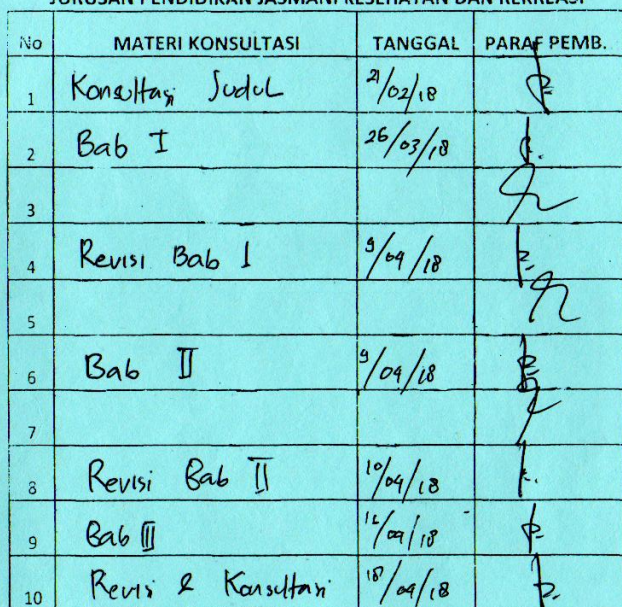 JURUSAN PENDIDIKAN JASMANI KESEHATAN DAN REKREASI
No MATERI KONSULTASI TANGGAL PARAF PEMB.
1 Konsultasi Judul 21/02/18
2 Bab I 26/03/18
3
4 Revisi Bab I 9/04/18
5
6 Bab II 9/04/18
7
8 Revisi Bab II 10/04/18
9 Bab III /04/18
10 Revisi & Konsultasi 18/04/18